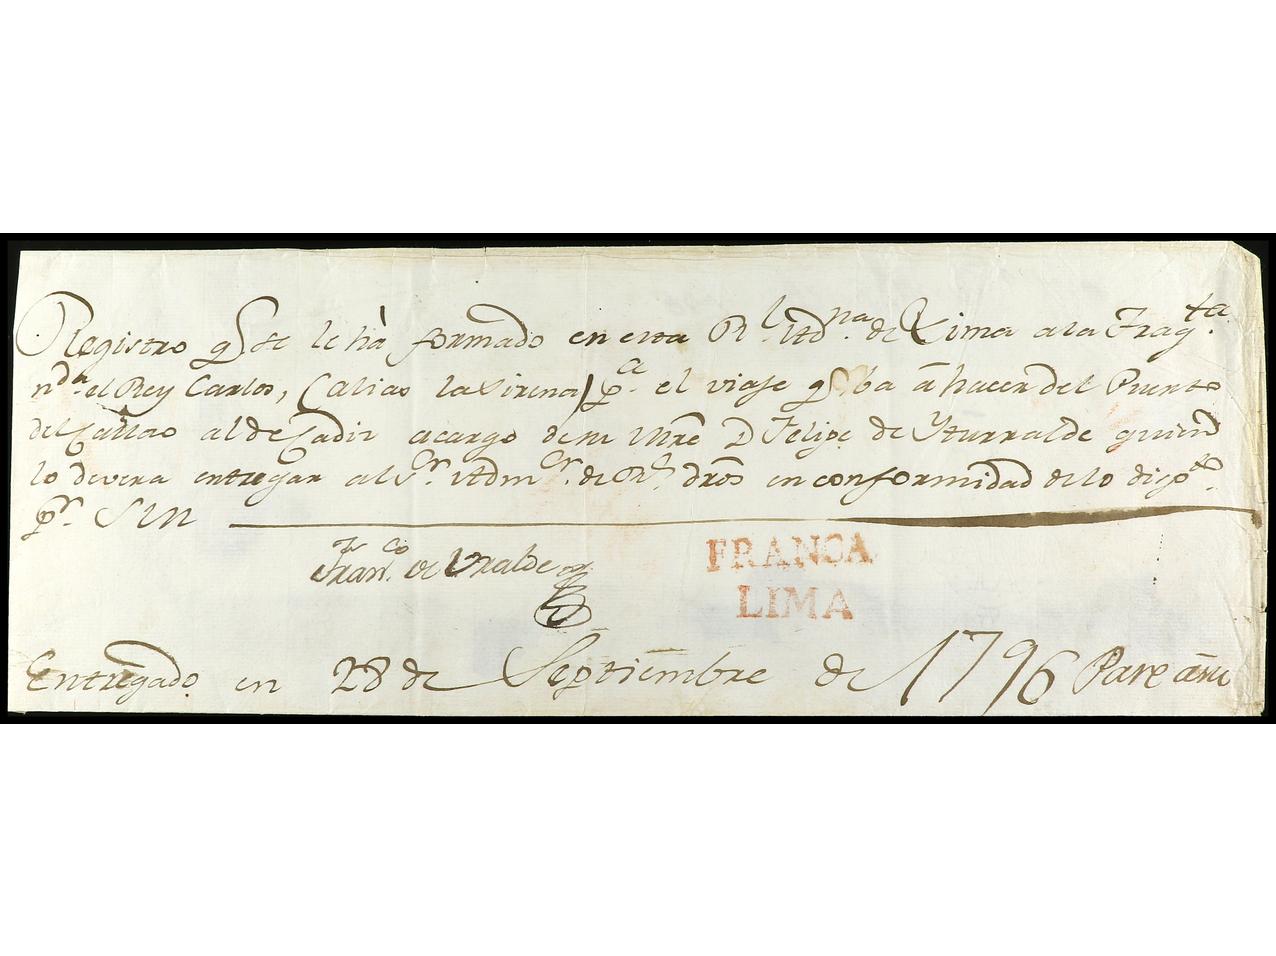 Registro q se le hà formado en esta Rl. Adna. de Lima a la Fragta.
nda. el Rey Carlos, (alias la Sirena) pa. el viaje q ba â hacer del Puerto
del Callao al de Cadiz a cargo de su Mre D Felipe de Yturralde quien
lo devera entregar al Sr. Admor. de Rs. dros en conformidad de lo dispto.
pr. S M
Franco. de Uralde
FRANCA
LIMA
Entregado en 28 de Septiembre de 1796